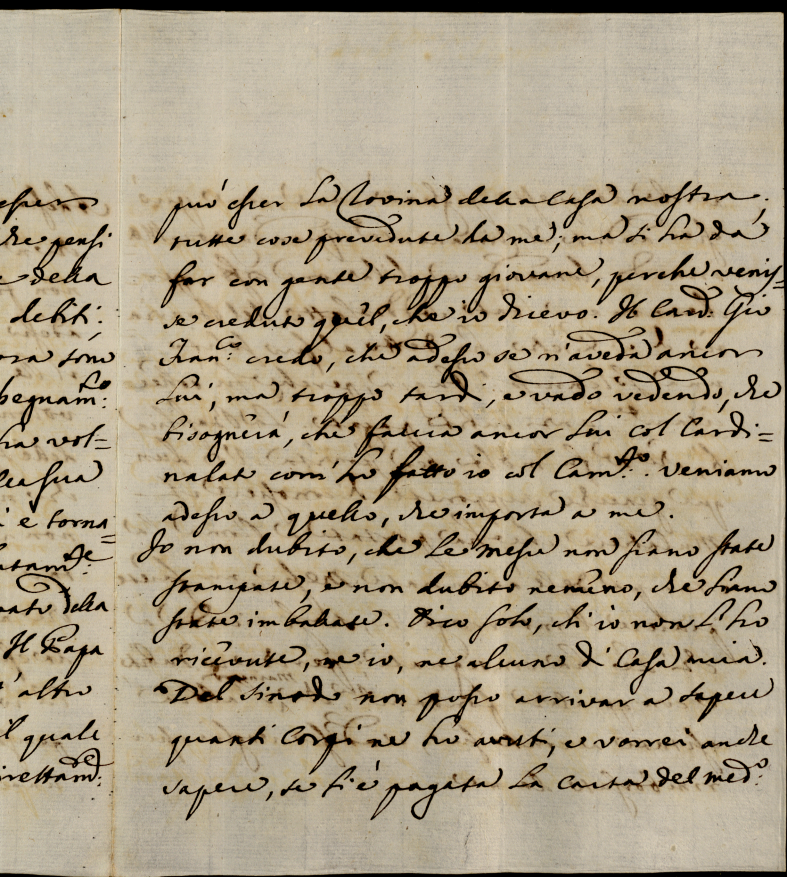 esser
che pensi
e della
debiti:
ora sono
begnam:to
ha vol=
lla sua
i è torna=
atam:te
nato della
Il Papa
l'altro
il quale
irettam:te
può esser la Rovina della Casa nostra;
tutte cose prevedute da me; ma si hà da
far con gente troppo giovane, perche venis=
se creduto quel, che io dicevo. Il Card: Gio
Fran:co credo, che adesso se n'aveda ancor
Lui, ma troppo tardi, e vado vedendo, che
bisognerà, che faccia ancor Lui col Cardi=
nalato com'hò fatto io col Cam:to. Veniamo
adesso a quello, che importa a me.
Io non dubito, che le messe non siano state
stampate, e non dubito nemeno, che siano
state imballate. Dico solo, ch'io non l'hò
ricevute, ne io, ne alcuno di Casa mia.
Del Sinodo non posso arrivar a sapere
quanti Corpi ne hò avuti, e vorrei anche
sapere, se si è pagata la carta del med:o